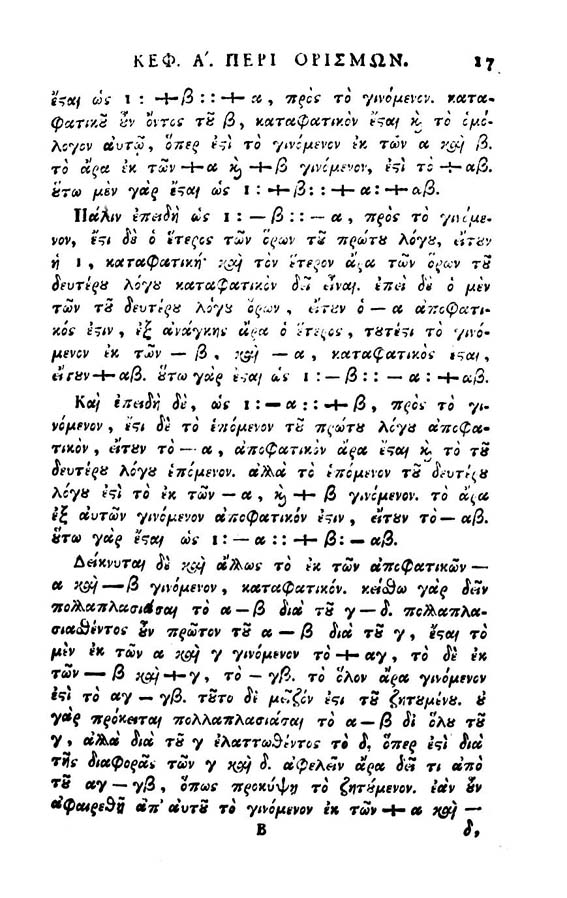 ΚΕΦ. Α΄. ΠΕΡΙ ΟΡΙΣΜΩΝ. 17
ἔςαι ὡς 1 : +β : : +α, πρὸς τὸ γινόμενον. κατα-
φατικοῦ ὖν ὄντος τοῦ β, καταφατικὸν ἔςαι καὶ τὸ ὁμό-
λογον αὐτῷ, ὅπερ ἐςὶ τὸ γινόμενον ἐκ τῶν α καὶ β.
τὸ ἄρα ἐκ τῶν +α καὶ +β γινόμενον, ἐςὶ τὸ +αβ.
ὕτω μὲν γάρ ἔςαι ὡς 1 : +β : : +α : +αβ.
Πάλιν ἐπειδὴ ὡς 1 : —β : : —α, πρὸς τὸ γινόμε-
νον, ἔςι δὲ ὁ ἕτερος τῶν ὅρων τοῦ πρώτου λόγου, εἴτουν
ἡ 1, καταφατική· καὶ τὸν ἕτερον ἄρα τῶν ὅρων τοῦ
δευτέρου λόγου καταφατικὸν δεῖ εἶναι. ἐπεὶ δὲ ὁ μὲν
τῶν τοῦ δευτέρου λόγου ὅρων, εἴτουν ὁ —α ἀποφατι-
κός ἐςιν, ἐξ ἀνάγκης ἄρα ὁ ἕτερος, τουτέςι τὸ γινό-
μενον ἐκ τῶν —β, καὶ —α, καταφατικὸς ἔςαι,
εἴτουν +αβ. ὕτω γάρ ἔςαι ὡς 1 : —β : : —α : +αβ.
Καὶ ἐπειδὴ δὲ, ὡς 1 : —α : : +β, πρὸς τὸ γι-
νόμενον, ἔςι δὲ τὸ ἑπόμενον τοῦ πρώτου λόγου ἀποφα-
τικὸν, εἴτουν τὸ —α, ἀποφατικὸν ἄρα ἔςαι καὶ τὸ τοῦ
δευτέρου λόγου ἑπόμενον. ἀλλὰ τὸ ἑπόμενον τοῦ δευτέρου
λόγου ἐςὶ τὸ ἐκ τῶν —α, καὶ +β γινόμενον. τὸ ἄρα
ἐξ αὐτῶν γινόμενον ἀποφατικόν ἐςιν, εἴτουν τὸ —αβ.
ὕτω γάρ ἔςαι ὡς 1 : —α : : +β : —αβ.
Δείκνυται δὲ καὶ ἄλλως τὸ ἐκ τῶν ἀποφατικῶν —
α καὶ —β γινόμενον, καταφατικόν. κείσθω γὰρ δεῖν
πολλαπλασιάσαι τὸ α—β διὰ τοῦ γ—δ. πολλαπλα-
σιασθέντος ὖν πρῶτον τοῦ α—β διὰ τοῦ γ, ἔςαι τὸ
μὲν ἐκ τῶν α καὶ γ γινόμενον τὸ +αγ, τὸ δὲ ἐκ
τῶν —β καὶ +γ, τὸ —γβ. τὸ ὅλον ἄρα γινόμενον
ἐςὶ τὸ αγ—γβ. τοῦτο δὲ μεῖζόν ἐςι τοῦ ζητουμένου. ὐ
γὰρ πρόκειται πολλαπλασιάσαι τὸ α—β δι ὅλου τοῦ
γ, ἀλλὰ διὰ τοῦ γ ἐλαττωθέντος τὸ δ, ὅπερ ἐςὶ διὰ
τῆς διαφορᾶς τῶν γ καὶ δ. ἀφελεῖν ἄρα δεῖ τι ἀπὸ
τοῦ αγ—γβ, ὅπως προκύψῃ τὸ ζητούμενον. ἐὰν ὖν
ἀφαιρεθῇ ἀπ᾽ αὐτοῦ τὸ γινόμενον ἐκ τῶν +α καὶ —
B δ,